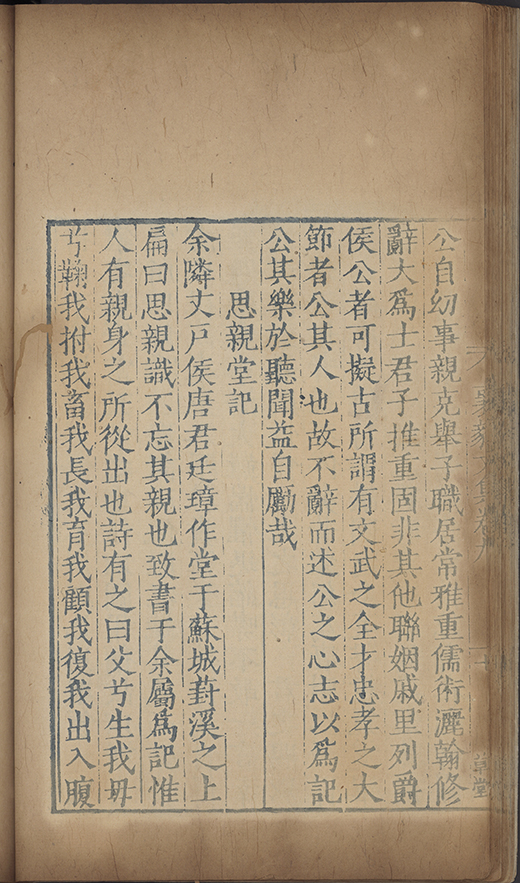 公自幼事親克舉子職居常雅重儒術灑翰修
辭大爲士君子推重固非其他聯姻戚里列爵
侯公者可擬古所謂有文武之全才忠孝之大
節者公其人也故不辭而述公之心志以爲記
公其樂於聽聞益自勵哉
思親堂記
余隣丈戶侯唐君廷璋作堂于蘇城葑溪之上
扁曰思親識不忘其親也致書于余屬爲記惟
人有親身之所從出也詩有之曰父兮生我毋
兮鞠我拊我畜我長我育我顧我復我出入腹